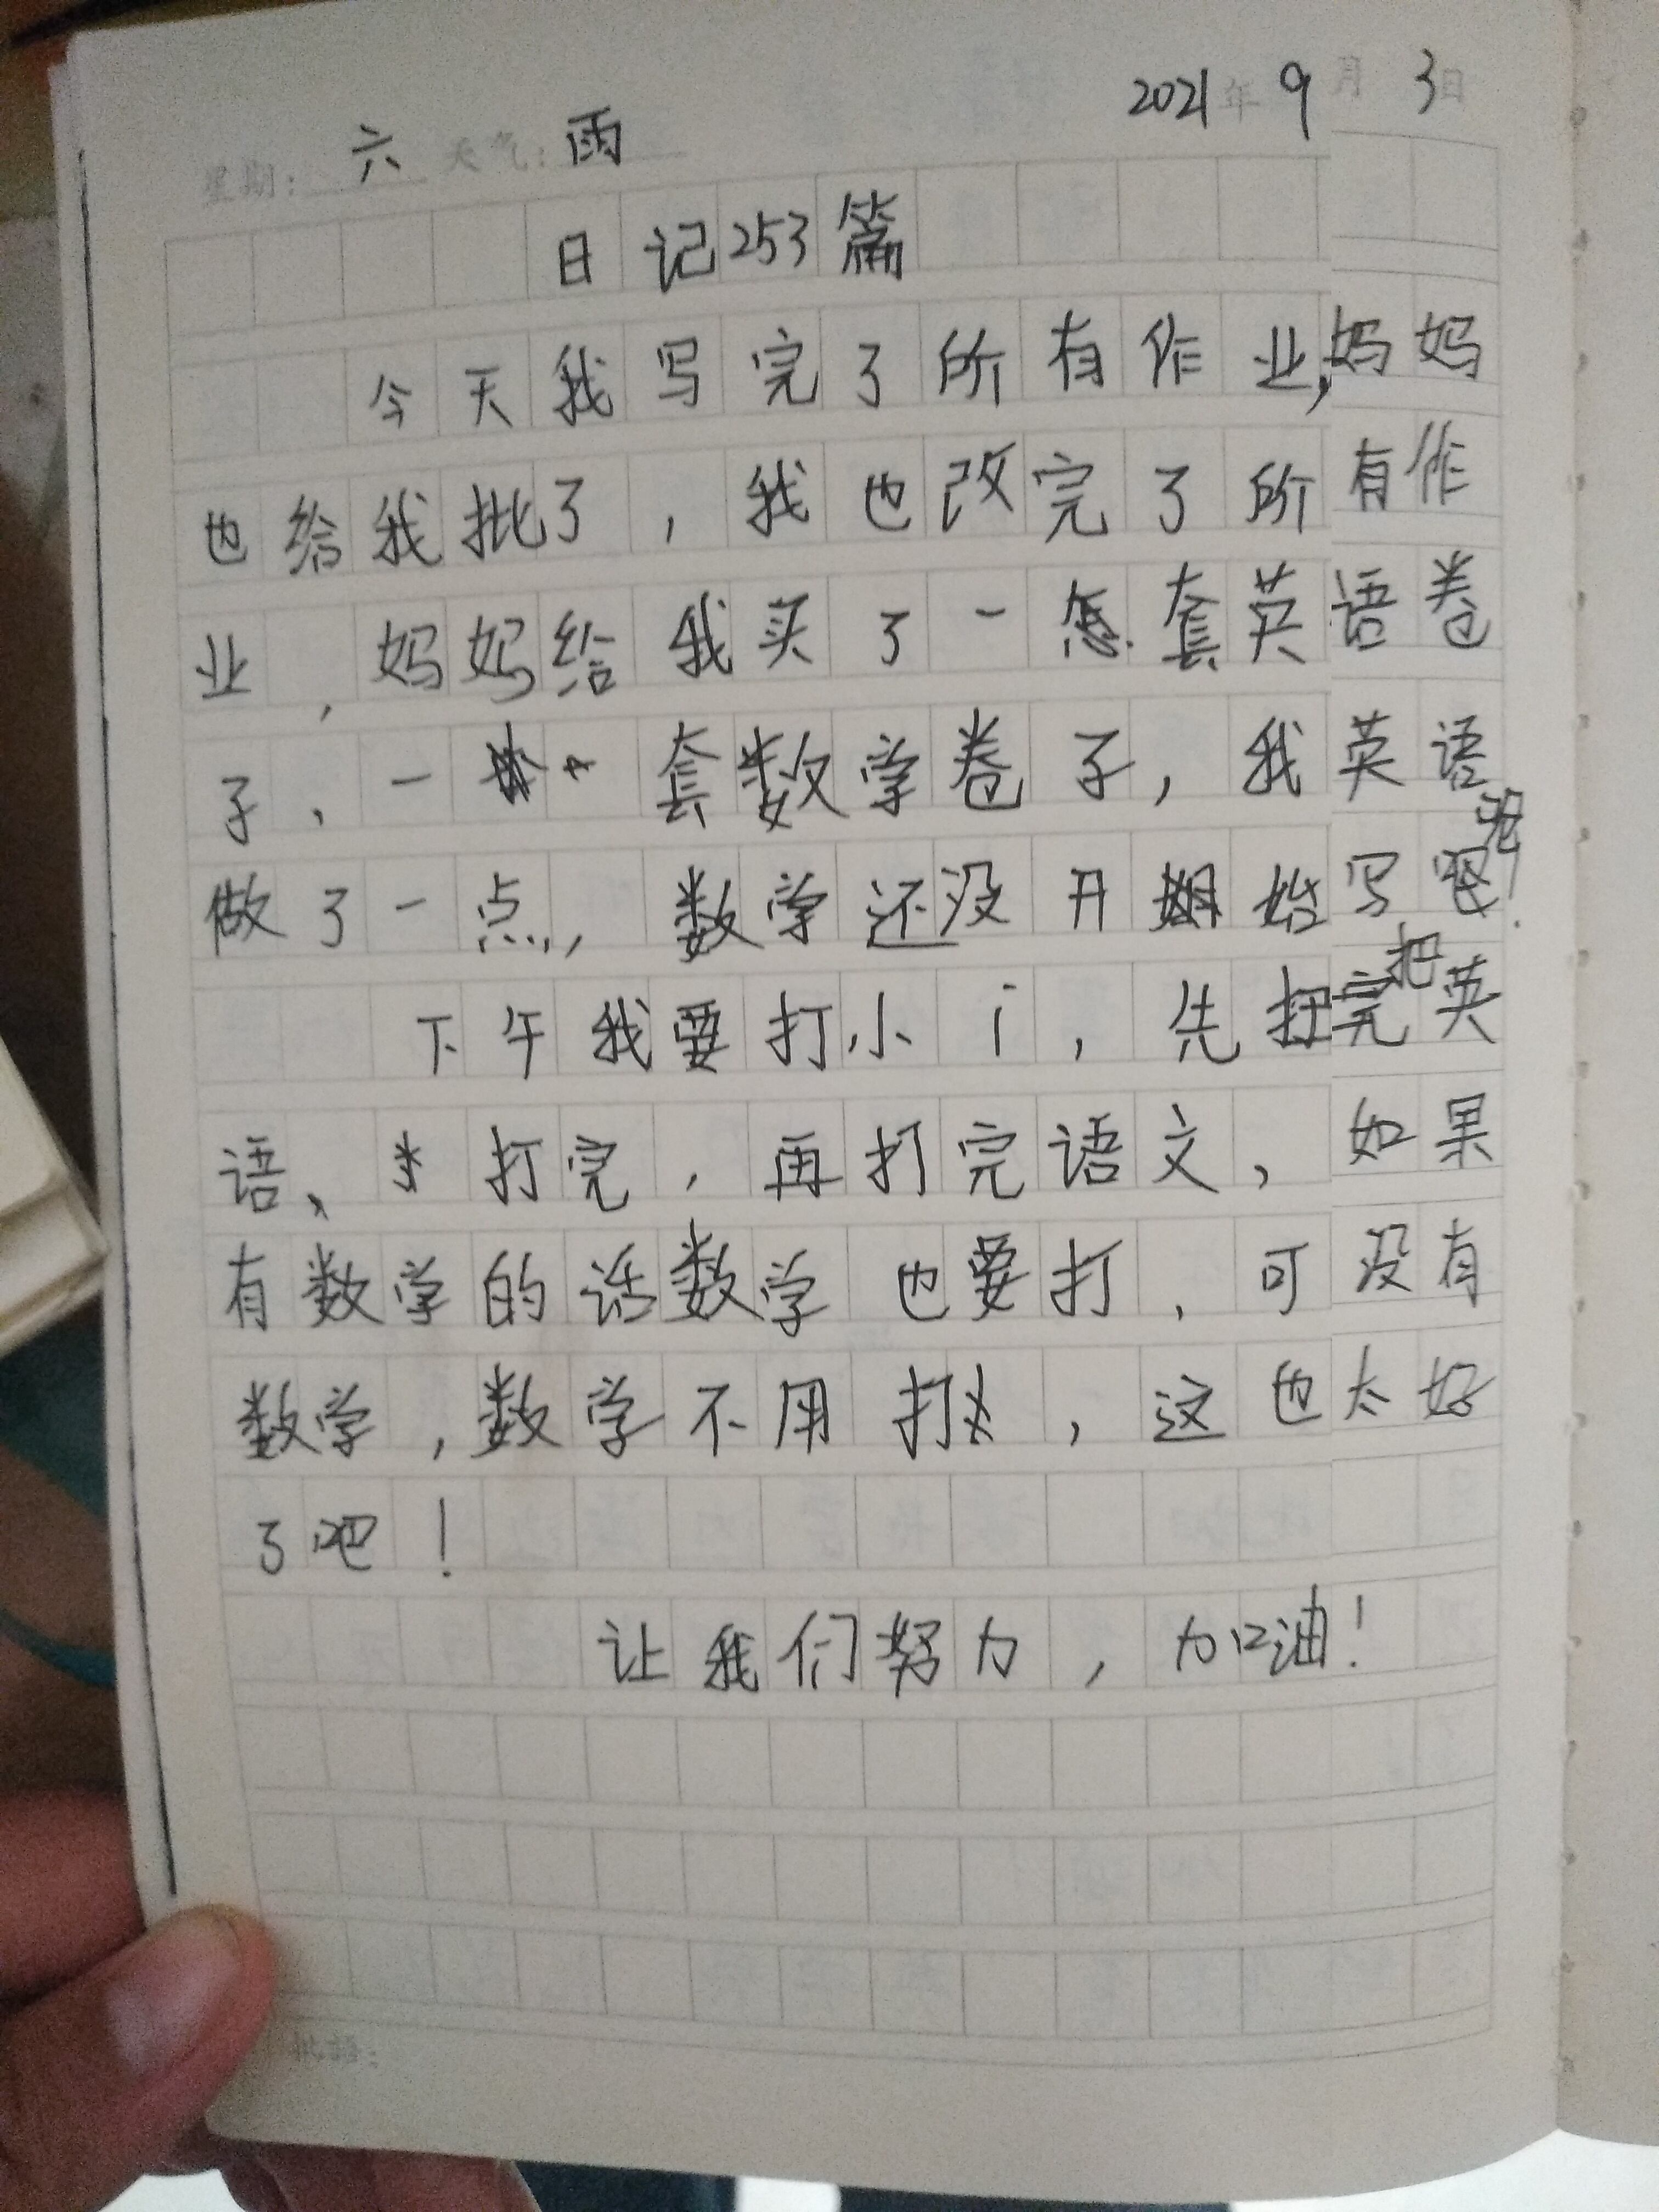 2021年9月3日
星期：六 天气：雨
日记253篇
今天我写完了所有作业，妈妈
也给我批了，我也改完了所有作
业，妈妈给我买了一套英语卷
子，一套数学卷子，我英语
做了一点，数学还没开始写呢！
下午我要打小i，先把英
语、打完，再打完语文，如果
有数学的话数学也要打，可没有
数学，数学不用打，这也太好
了吧！
让我们努力，加油！
批语：